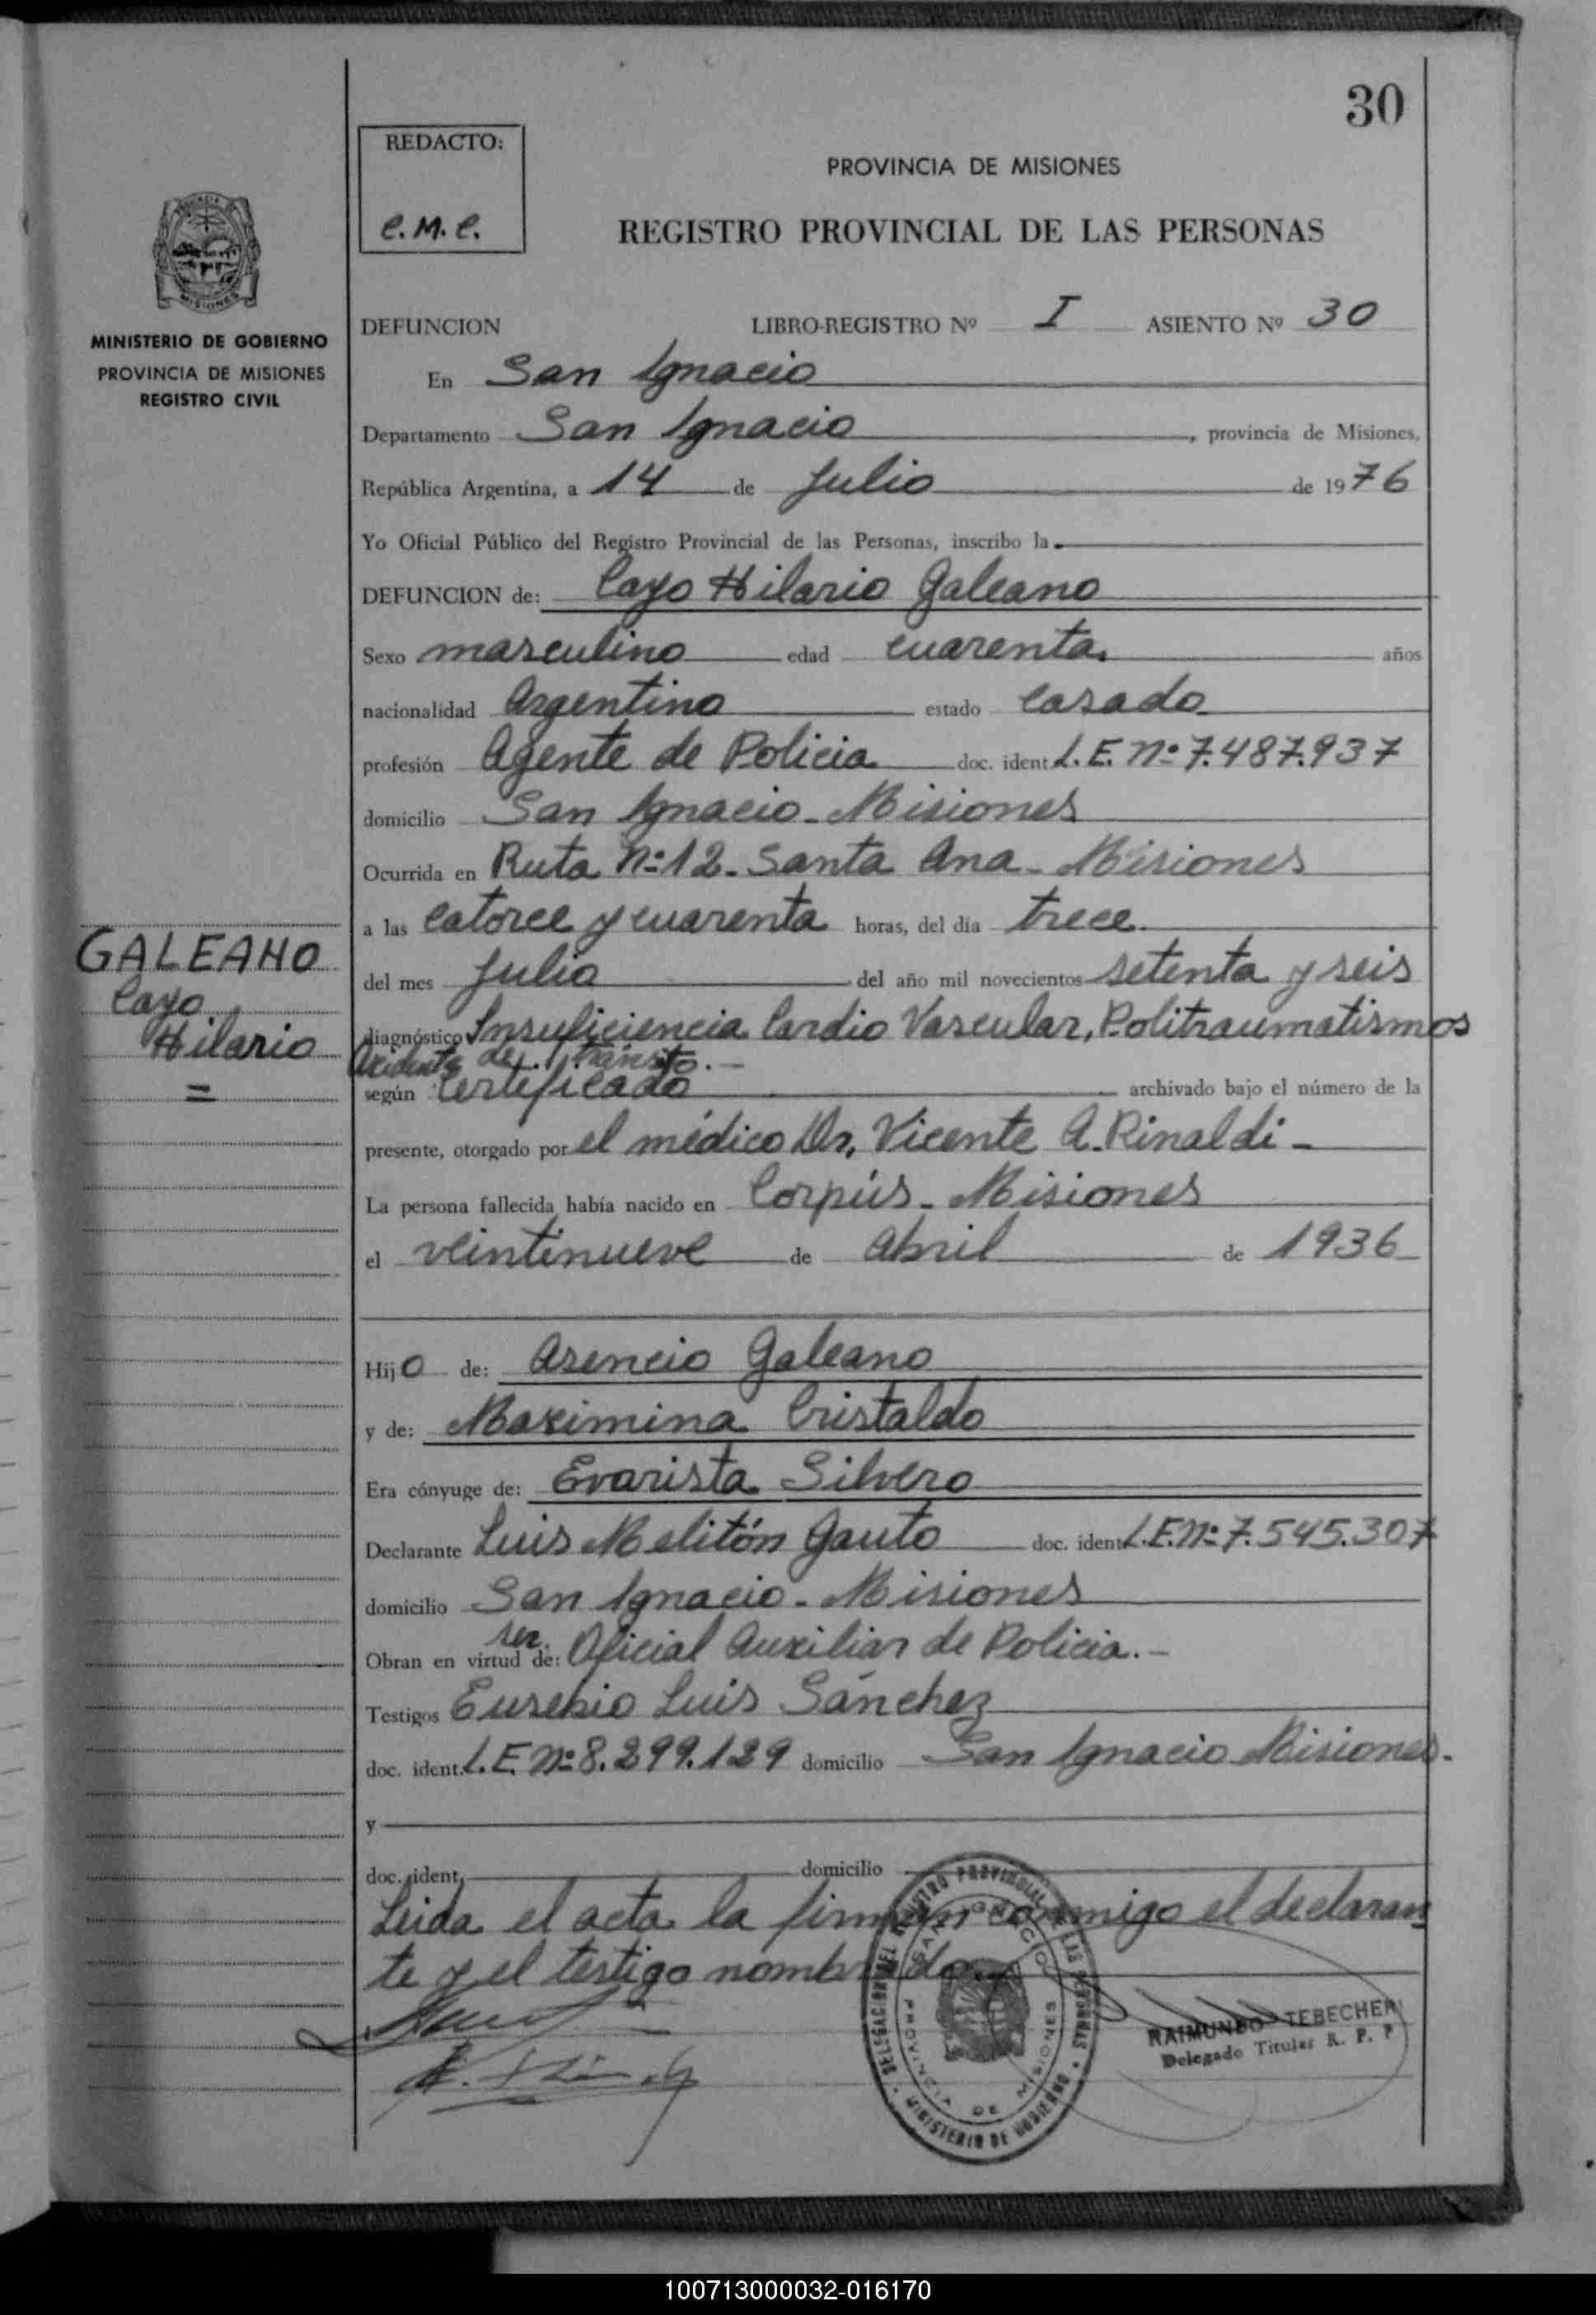 30
REDACTO:
C.M.C.
PROVINCIA DE MISIONES
REGISTRO PROVINCIAL DE LAS PERSONAS
MISIONES
MINISTERIO DE GOBIERNO
PROVINCIA DE MISIONES
REGISTRO CIVIL
DEFUNCION LIBRO-REGISTRO Nº I ASIENTO Nº 30
En San Ignacio
Departamento San Ignacio, provincia de Misiones,
República Argentina, a 14 de Julio de 1976
Yo Oficial Público del Registro Provincial de las Personas, inscribo la
DEFUNCION de: Cayo Hilario Galeano
Sexo masculino edad cuarenta años
nacionalidad Argentino estado Casado
profesión Agente de Policia doc. ident L.E. Nº 7.487.937
domicilio San Ignacio - Misiones
Ocurrida en Ruta Nº 12 - Santa Ana - Misiones
a las Catorce y cuarenta horas, del día trece
GALEANO
Cayo
Hilario
=
del mes Julio del año mil novecientos setenta y seis
diagnóstico Insuficiencia Cardio Vascular, Politraumatismos
Accidente de Tránsito.-
según Certificado archivado bajo el número de la
presente, otorgado por el médico Dr, Vicente A. Rinaldi -
La persona fallecida había nacido en Corpús - Misiones
el veintinueve de Abril de 1936
Hijo de: Asencio Galeano
y de: Maximina Cristaldo
Era cónyuge de: Evarista Silvero
Declarante Luis Melitón Gauto doc. ident L.E.Nº 7.545.307
domicilio San Ignacio - Misiones
Obran en virtud de: ser Oficial Auxiliar de Policia.-
Testigos Eusebio Luis Sánchez
doc. ident. L.E. Nº 8.299.129 domicilio San Ignacio Misiones.
y
doc. ident. domicilio
Leida el acta la firman conmigo el declaran
te y el testigo nombrado.
DELEGACION DEL REGISTRO PROVINCIAL DE LAS PERSONAS
SAN IGNACIO
PROVINCIA DE MISIONES
MINISTERIO DE GOBIERNO
RAIMUNDO TEBECHERI
Delegado Titular R. P. P
100713000032-016170